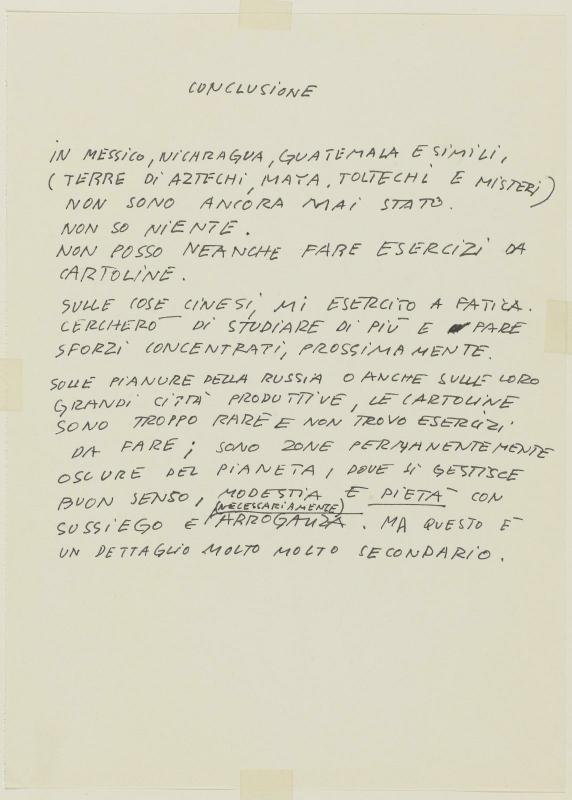 CONCLUSIONE
IN MESSICO, NICARAGUA, GUATEMALA E SIMILI,
(TERRE DI AZTECHI, MAYA, TOLTECHI E MISTERI)
NON SONO ANCORA MAI STATO.
NON SO NIENTE.
NON POSSO NEANCHE FARE ESERCIZI DA
CARTOLINE.
SULLE COSE CINESI, MI ESERCITO A FATICA.
CERCHERÒ DI STUDIARE DI PIÙ E FARE
SFORZI CONCENTRATI, PROSSIMAMENTE.
SULLE PIANURE DELLA RUSSIA O ANCHE SULLE LORO
GRANDI CITTÀ PRODUTTIVE, LE CARTOLINE
SONO TROPPO RARE E NON TROVO ESERCIZI
DA FARE; SONO ZONE PERMANENTEMENTE
OSCURE DEL PIANETA, DOVE SI GESTISCE
BUON SENSO, MODESTIA E PIETÀ CON
(NECESSARIAMENTE)
SUSSIEGO E ARROGANZA. MA QUESTO È
UN DETTAGLIO MOLTO MOLTO SECONDARIO.